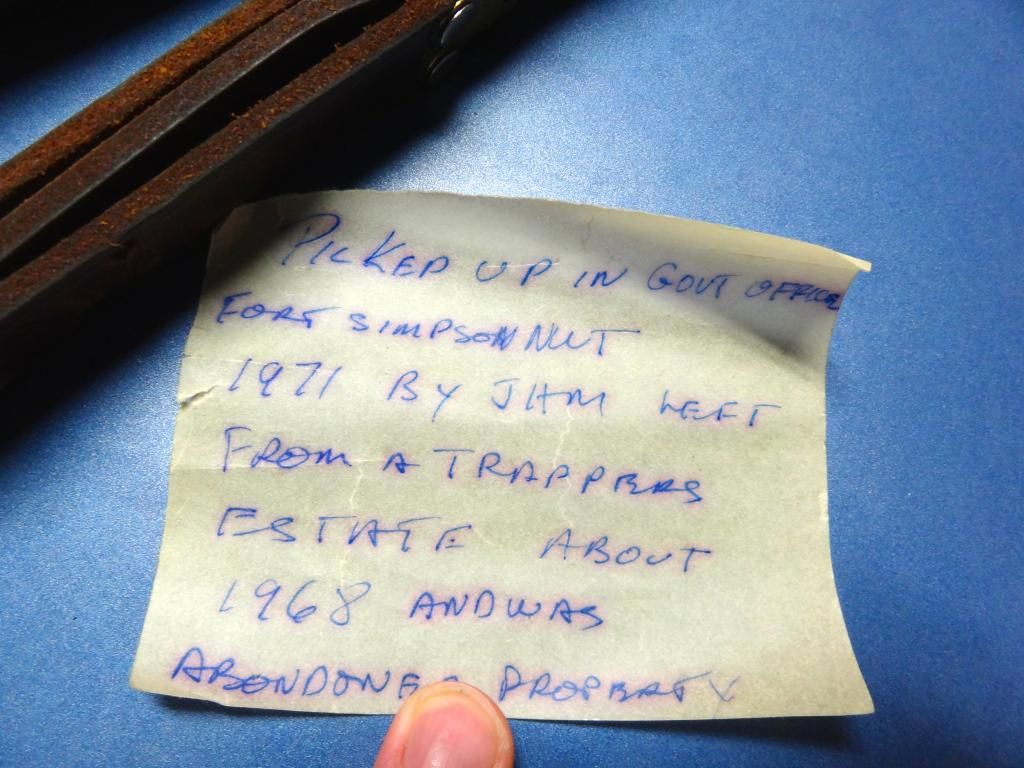 PICKED UP IN GOVT OFFICE
FORT SIMPSON NWT
1971 BY JHM LEFT
FROM A TRAPPERS
ESTATE ABOUT
1968 AND WAS
ABONDONED PROPERTY